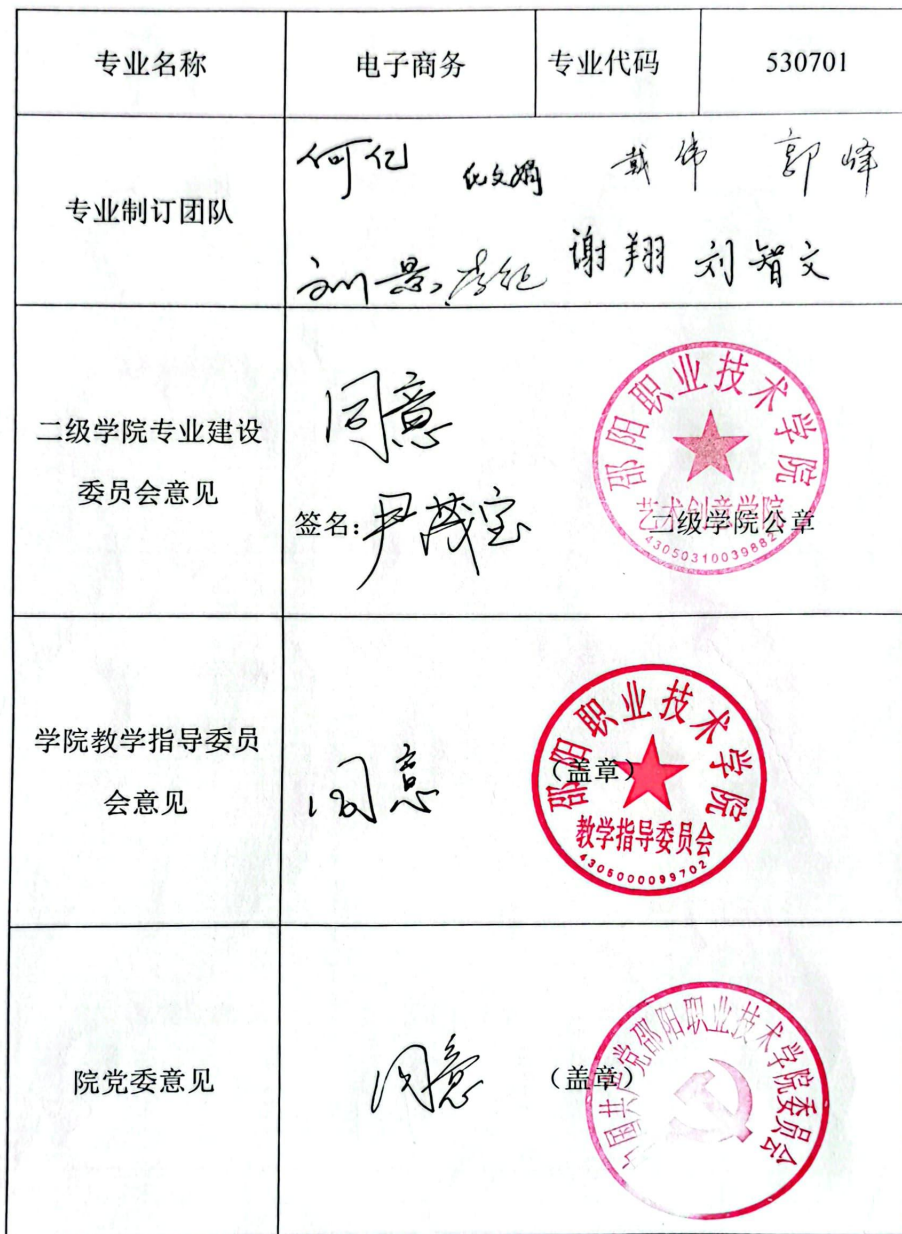 专业名称 电子商务 专业代码 530701
专业制订团队
何亿 戴伟 郭峰
刘景 谢翔 刘智文
二级学院专业建设
委员会意见
同意
签名:尹茂宝
邵阳职业技术学院
艺术创意学院
二级学院公章
4305031003988​2
学院教学指导委员
会意见
同意
(盖章)
邵阳职业技术学院
教学指导委员会
4305000099702
院党委意见
同意
(盖章)
中国共产党邵阳职业技术学院委员会